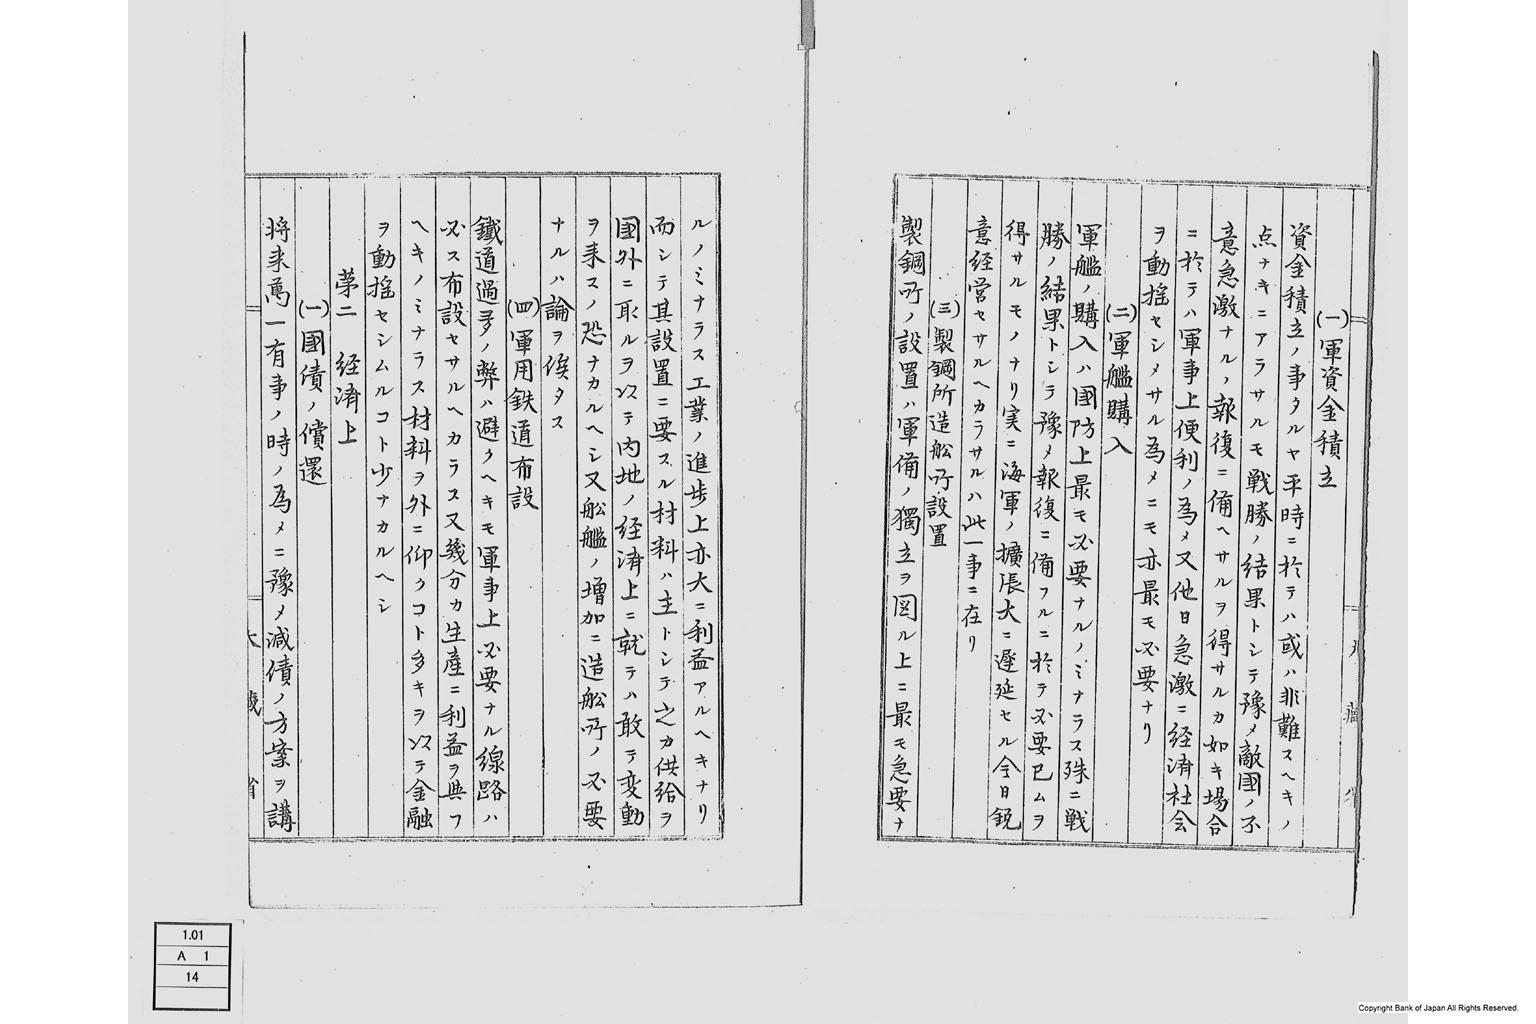 (一)軍資金積立
資金積立ノ事タルヤ平時ニ於テハ或ハ非難スヘキノ
点ナキニアラサルモ戦勝ノ結果トシテ豫メ敵國ノ不
意急激ナル報復ニ備ヘサルヲ得サルカ如キ場合
ニ於テハ軍事上便利ノ為メ又他日急激ニ経済社会
ヲ動揺セシメサル為メニモ亦最モ必要ナリ
(二)軍艦購入
軍艦ノ購入ハ國防上最モ必要ナルノミナラス殊ニ戦
勝ノ結果トシテ豫メ報復ニ備フルニ於テ必要已ムヲ
得サルモノナリ実ニ海軍ノ擴張大ニ遅延セル今日鋭
意経営セサルヘカラサルハ此一事ニ在リ
(三)製鋼所造船所設置
製鋼所ノ設置ハ軍備ノ獨立ヲ図ル上ニ最モ急要ナ
ルノミナラス工業ノ進歩上亦大ニ利益アルヘキナリ
而シテ其設置ニ要スル材料ハ主トシテ之カ供給ヲ
國外ニ取ルヲ以テ内地ノ経済上ニ就テハ敢テ変動
ヲ来スノ恐ナカルヘシ又船艦ノ増加ニ造船所ノ必要
ナルハ論ヲ俟タス
(四)軍用鉄道布設
鐵道過多ノ弊ハ避クヘキモ軍事上必要ナル線路ハ
必ス布設セサルヘカラス又幾分カ生産ニ利益ヲ與フ
ヘキノミナラス材料ヲ外ニ仰クコト多キヲ以テ金融
ヲ動揺セシムルコト少ナカルヘシ
第二 経済上
(一)國債ノ償還
将来萬一有事ノ時ノ為メニ豫メ減債ノ方案ヲ講
大藏省
1.01
A 1
14
Copyright Bank of Japan All Rights Reserved.